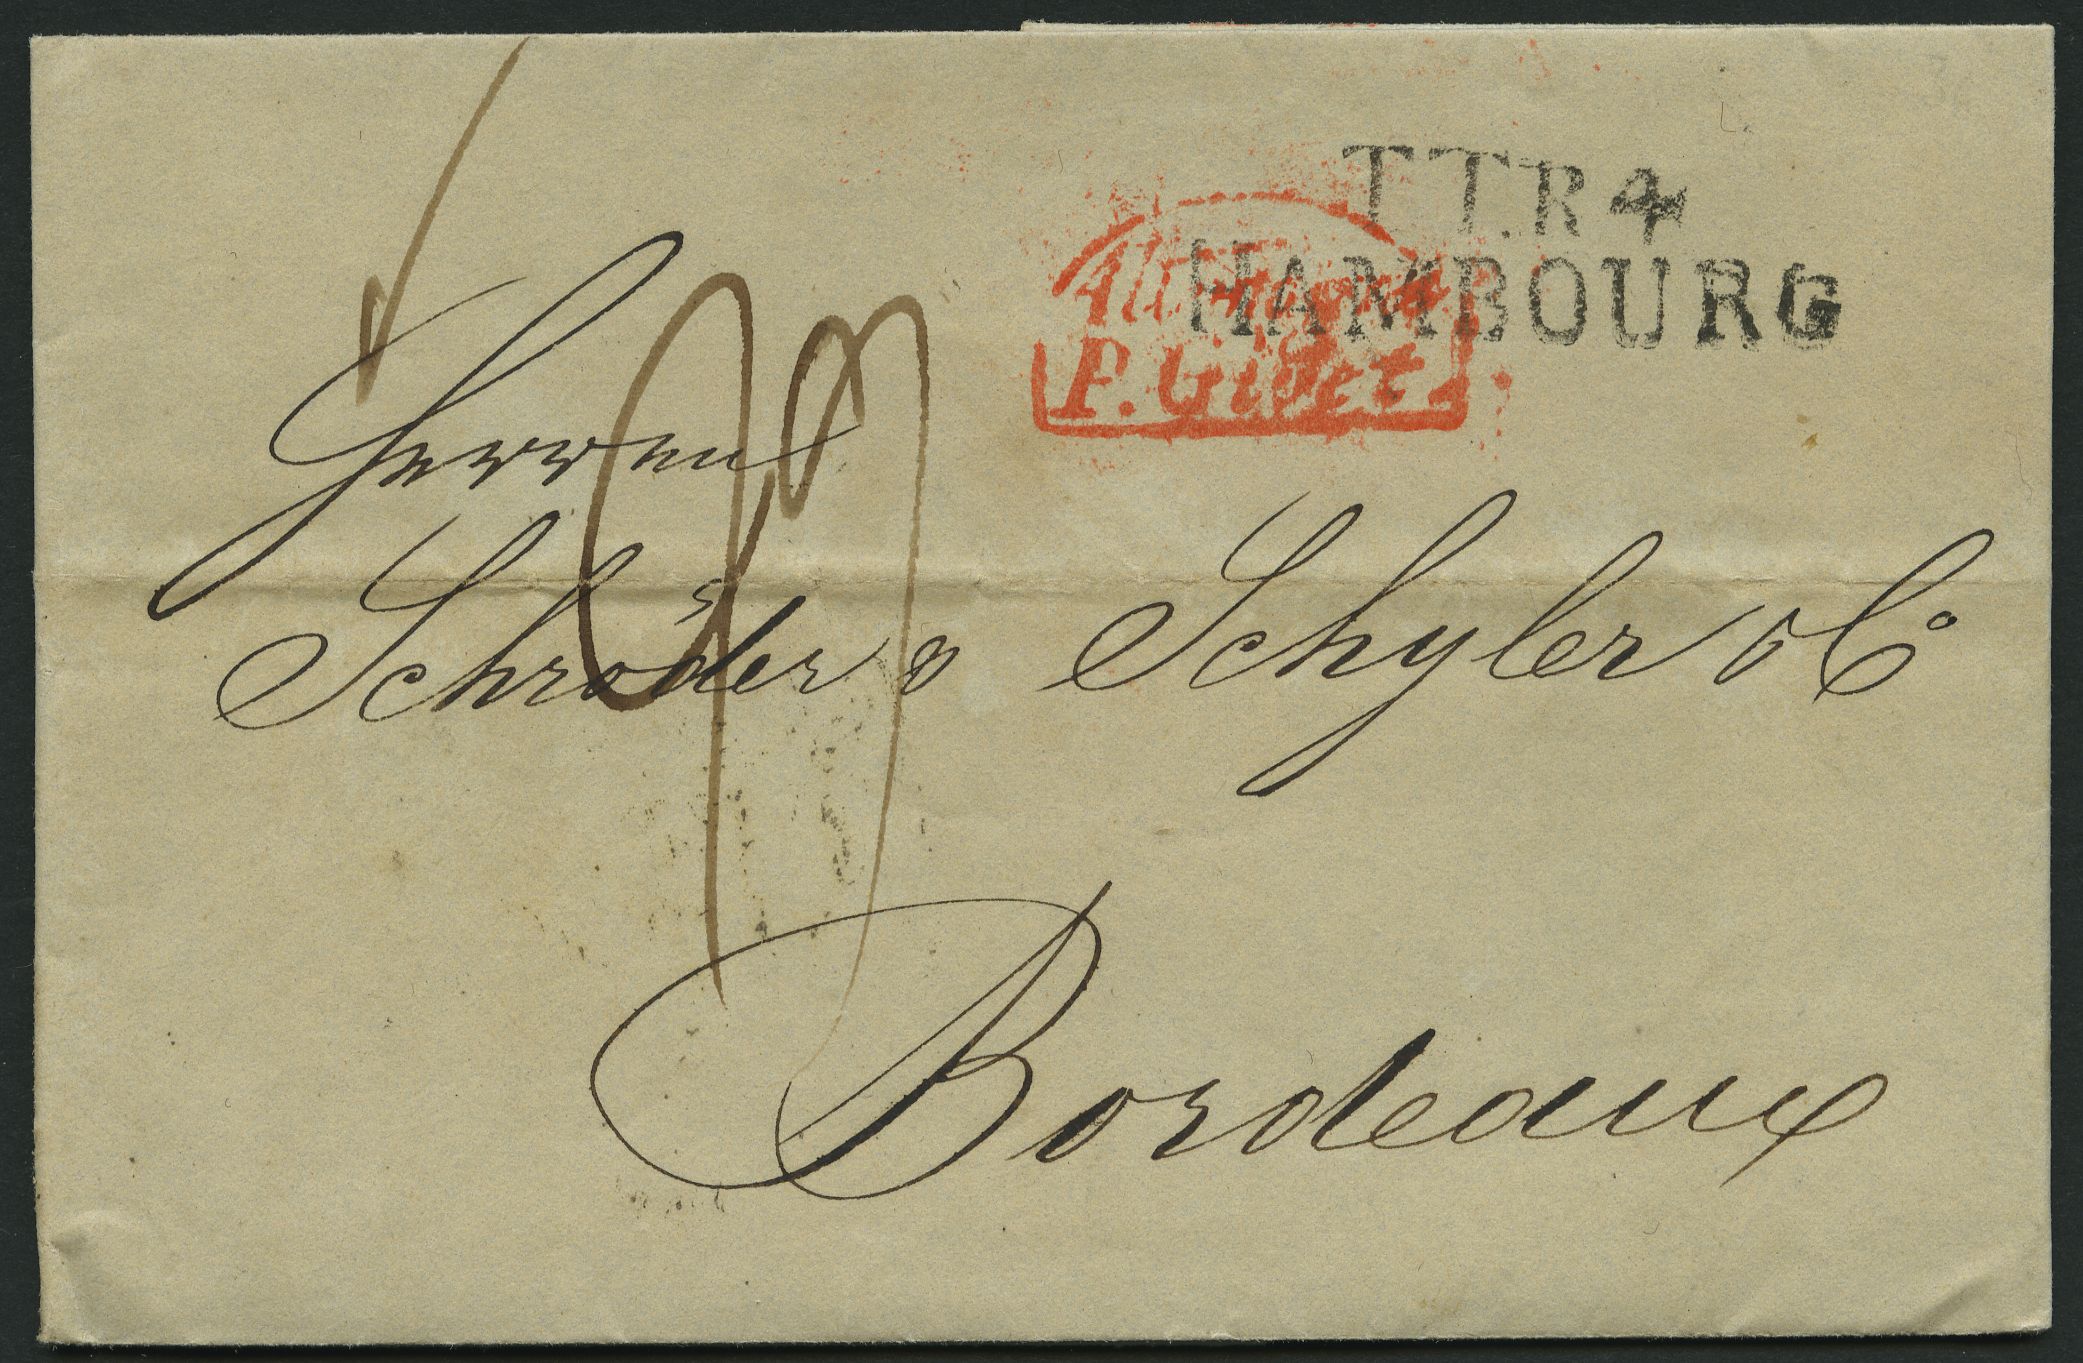 T.T.R 4
HAMBOURG
P. Givet
Herren
Schröder & Schyler & Co
Bordeaux